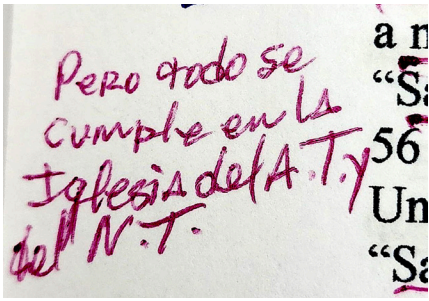 Pero todo se
cumple en la
Iglesia del A.T. y
del N.T.
a
“Sa
56
Un
“Sa